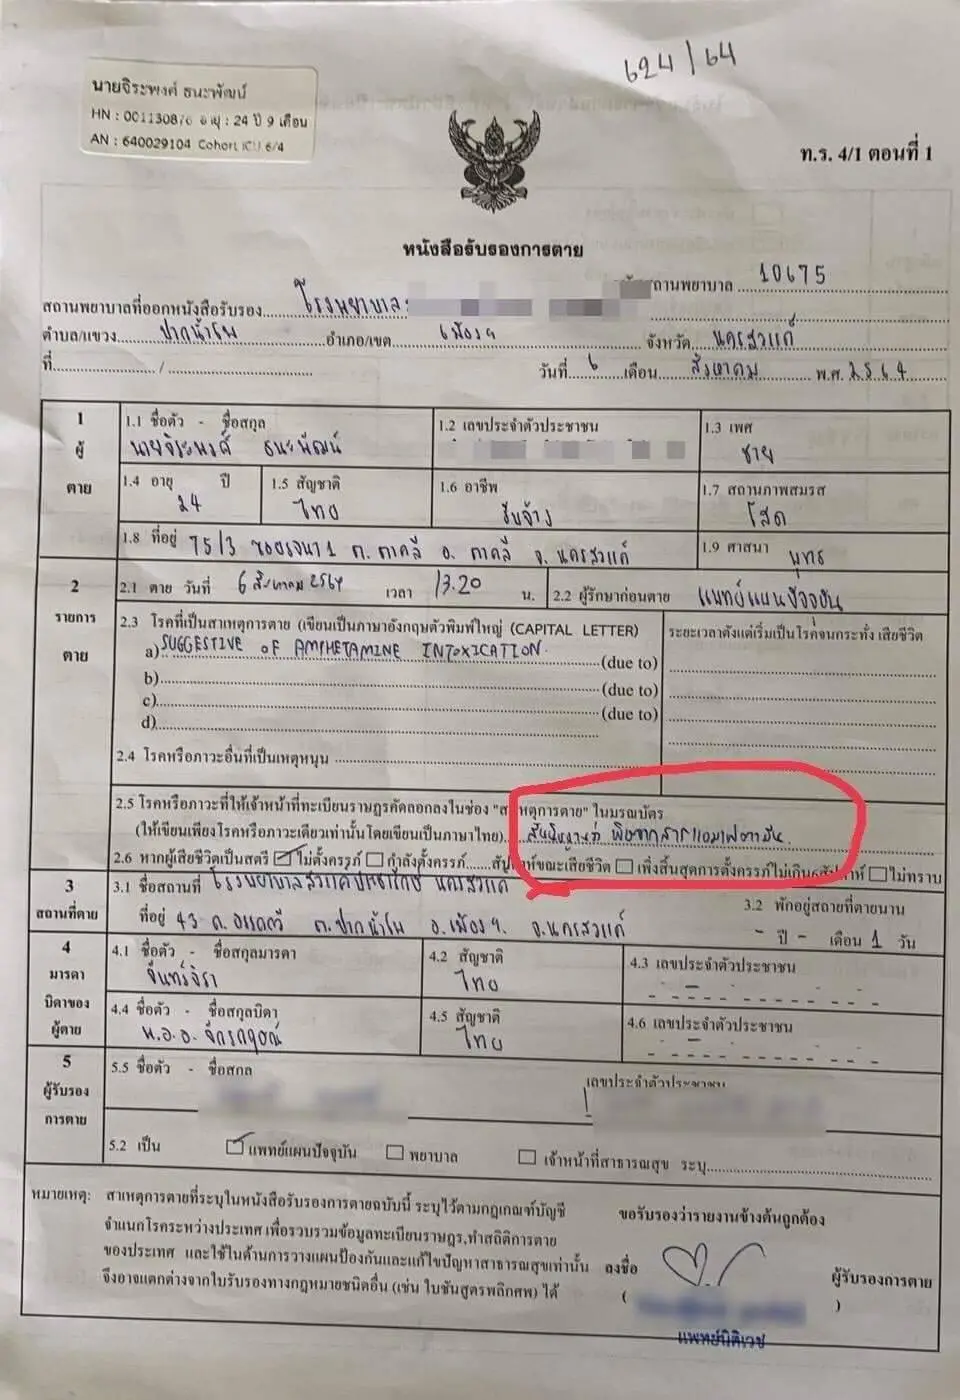 624/64
นายจิระพงศ์ ธนะพัฒน์
HN : 001130876 อายุ : 24 ปี 9 เดือน
AN : 640029104 Cohort ICU 6/4
ท.ร. 4/1 ตอนที่ 1
หนังสือรับรองการตาย
สถานพยาบาล 10675
สถานพยาบาลที่ออกหนังสือรับรอง โรงพยาบาล
ตำบล/แขวง ปากน้ำโพ อำเภอ/เขต เมืองฯ จังหวัด นครสวรรค์
ที่ / วันที่ 6 เดือน สิงหาคม พ.ศ. 2564
1 ผู้ตาย
1.1 ชื่อตัว - ชื่อสกุล นายจิระพงศ์ ธนะพัฒน์
1.2 เลขประจำตัวประชาชน
1.3 เพศ ชาย
1.4 อายุ 24 ปี
1.5 สัญชาติ ไทย
1.6 อาชีพ รับจ้าง
1.7 สถานภาพสมรส โสด
1.8 ที่อยู่ 75/3 ต. ตาคลี อ. ตาคลี จ. นครสวรรค์
1.9 ศาสนา พุทธ
2 รายการตาย
2.1 ตาย วันที่ 6 สิงหาคม 2564 เวลา 13.20 น.
2.2 ผู้รักษาก่อนตาย แพทย์แผนปัจจุบัน
2.3 โรคที่เป็นสาเหตุการตาย (เขียนเป็นภาษาอังกฤษตัวพิมพ์ใหญ่ (CAPITAL LETTER)
ระยะเวลาตั้งแต่เริ่มเป็นโรคจนกระทั่ง เสียชีวิต
a) SUGGESTIVE OF AMPHETAMINE INTOXICATION (due to)
b) (due to)
c) (due to)
d)
2.4 โรคหรือภาวะอื่นที่เป็นเหตุหนุน
2.5 โรคหรือภาวะที่ให้เจ้าหน้าที่ทะเบียนราษฎรคัดลอกลงในช่อง "สาเหตุการตาย" ในมรณบัตร
(ให้เขียนเพียงโรคหรือภาวะเดียวเท่านั้นโดยเขียนเป็นภาษาไทย) สันนิษฐานว่า พิษจากสารแอมเฟตามีน
2.6 หากผู้เสียชีวิตเป็นสตรี ไม่ตั้งครรภ์ กำลังตั้งครรภ์ สัปดาห์ขณะเสียชีวิต เพิ่งสิ้นสุดการตั้งครรภ์ไม่เกิน6สัปดาห์ ไม่ทราบ
3 สถานที่ตาย
3.1 ชื่อสถานที่ โรงพยาบาลสวรรค์ประชารักษ์ นครสวรรค์
3.2 พักอยู่สถายที่ตายนาน
ที่อยู่ 43 ถ. อรรถกวี ต. ปากน้ำโพ อ. เมืองฯ จ. นครสวรรค์
- ปี - เดือน 1 วัน
4 มารดา บิดาของ ผู้ตาย
4.1 ชื่อตัว - ชื่อสกุลมารดา จันทร์จิรา
4.2 สัญชาติ ไทย
4.3 เลขประจำตัวประชาชน
4.4 ชื่อตัว - ชื่อสกุลบิดา พ.อ.อ. จักรกฤษณ์
4.5 สัญชาติ ไทย
4.6 เลขประจำตัวประชาชน
5 ผู้รับรอง การตาย
5.5 ชื่อตัว - ชื่อสกุล
เลขประจำตัวประชาชน
5.2 เป็น แพทย์แผนปัจจุบัน พยาบาล เจ้าหน้าที่สาธารณสุข ระบุ
หมายเหตุ: สาเหตุการตายที่ระบุในหนังสือรับรองการตายฉบับนี้ ระบุไว้ตามกฎเกณฑ์บัญชี
จำแนกโรคระหว่างประเทศ เพื่อรวบรวมข้อมูลทะเบียนราษฎร,ทำสถิติการตาย
ของประเทศ และใช้ในด้านการวางแผนป้องกันและแก้ไขปัญหาสาธารณสุขเท่านั้น
จึงอาจแตกต่างจากใบรับรองทางกฎหมายชนิดอื่น (เช่น ใบชันสูตรพลิกศพ) ได้
ขอรับรองว่ารายงานข้างต้นถูกต้อง
ลงชื่อ ผู้รับรองการตาย
( )
แพทย์นิติเวช